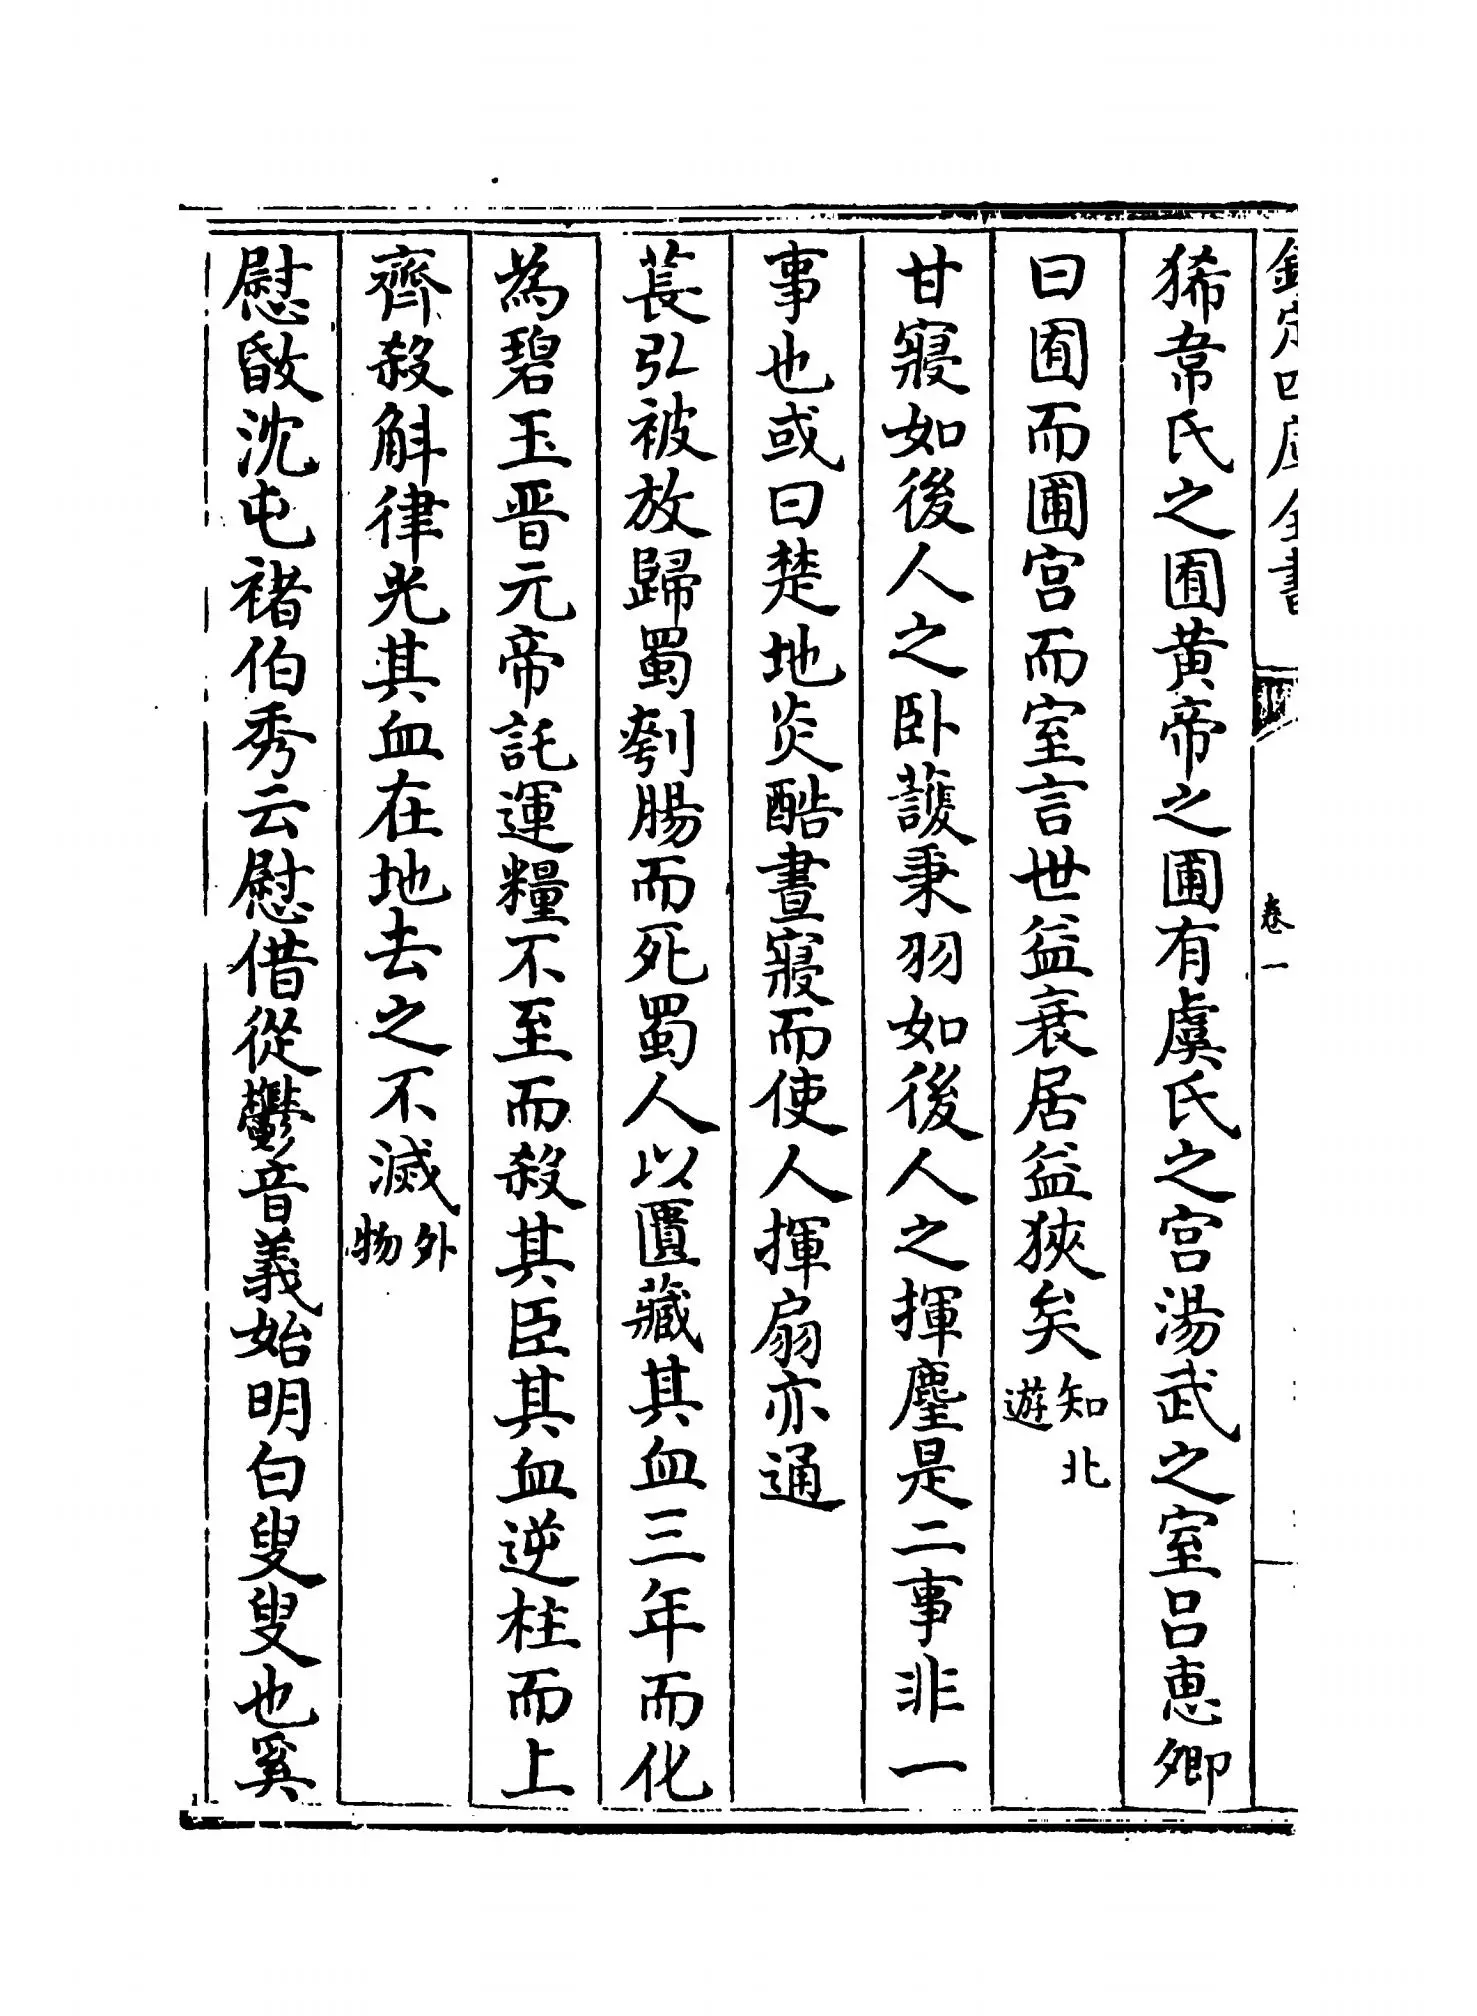 欽定四庫全書
卷一
狶韋氏之囿黃帝之圃有虞氏之宫湯武之室吕恵卿
曰囿而圃宫而室言世益衰居益狹矣知北遊
甘寢如後人之卧護秉羽如後人之揮麈是二事非一
事也或曰楚地炎酷晝寢而使人揮扇亦通
萇弘被放歸蜀刳腸而死蜀人以匱藏其血三年而化
為碧玉晋元帝託運糧不至而殺其臣其血逆柱而上
齊殺斛律光其血在地去之不滅外物
慰暋沈屯褚伯秀云慰借從鬱音義始明白叟叟也奚